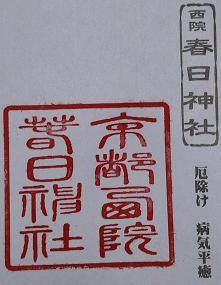 西院
春日神社
厄除け 病気平癒
京都西院
春日神社